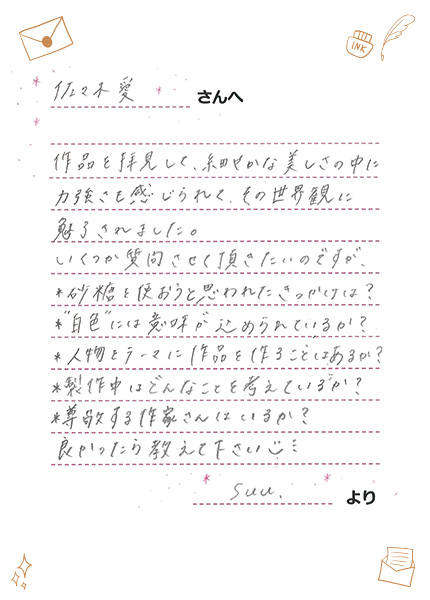 INK
佐々木 愛 さんへ
作品を拝見して、細やかな美しさの中に
力強さを感じられて、その世界観に
魅了されました。
いくつか質問させて頂きたいのですが、
*砂糖を使おうと思われたきっかけは?
*"白色"には意味が込められているか?
*人物をテーマに作品を作ることはあるか?
*製作中はどんなことを考えているか?
*尊敬する作家さんはいるか?
良かったら教えて下さい
suu. より